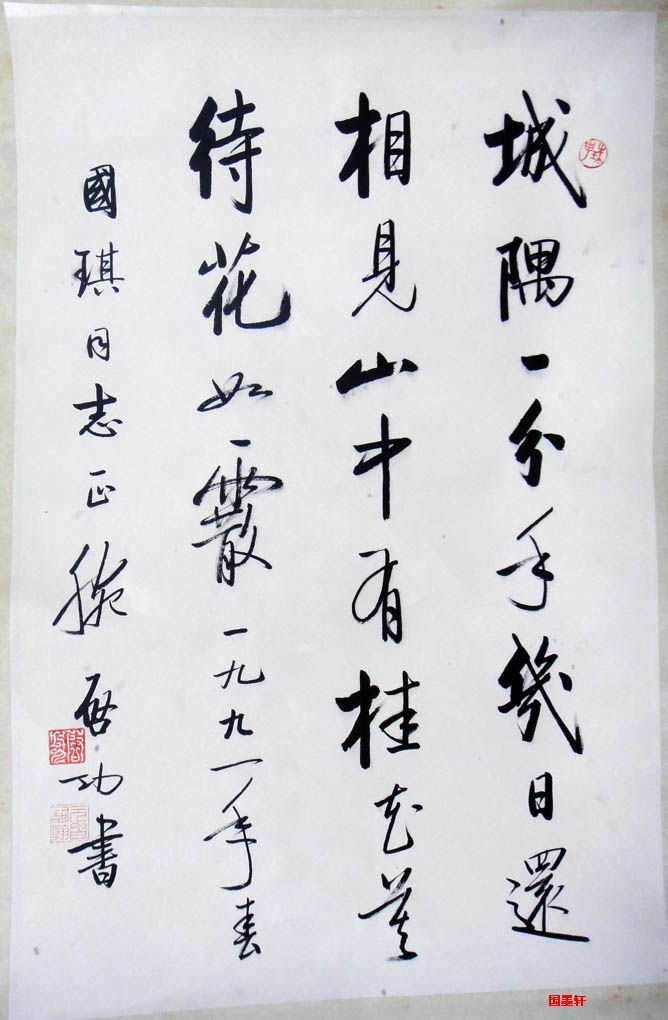 城隅一分手幾日還
相見山中有桂花莫
待花如霰一九九一年春
國琪同志正腕啟功書
国墨轩